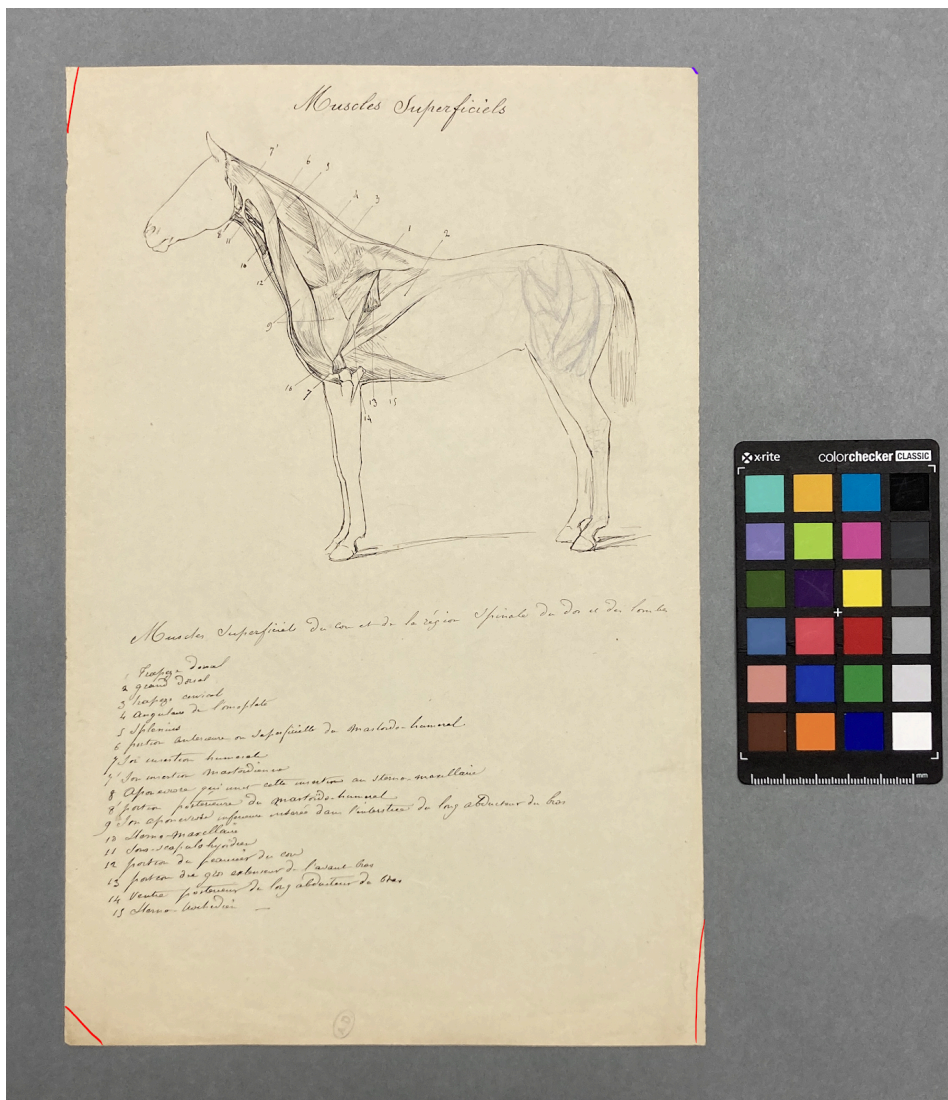 Muscles Superficiels
7' 6 5 4 3 1 2
8 11 10 12 9 16 7 13 15 14
Muscles Superficiels du cou et de la région Spinale du dos et des lombes
1 Trapèze dorsal
2 grand dorsal
3 trapèze cervical
4 Angulaire de l'omoplate
5 Splénius
6 portion antérieure ou superficielle du mastoïdo-huméral
7 Son insertion humérale
7' Son insertion mastoïdienne
8 Aponévrose qui unit cette insertion au sterno-maxillaire
8' portion postérieure du mastoïdo-huméral
9 Son aponévrose inférieure insérée dans l'interstice du long abducteur du bras
10 Sterno-maxillaire
11 Sous-scapulo hyoïdien
12 portion du peaucier du cou
13 portion du gros extenseur de l'avant bras
14 Ventre postérieur du long abducteur du bras
15 Sterno-trochinien
x-rite colorchecker CLASSIC
mm